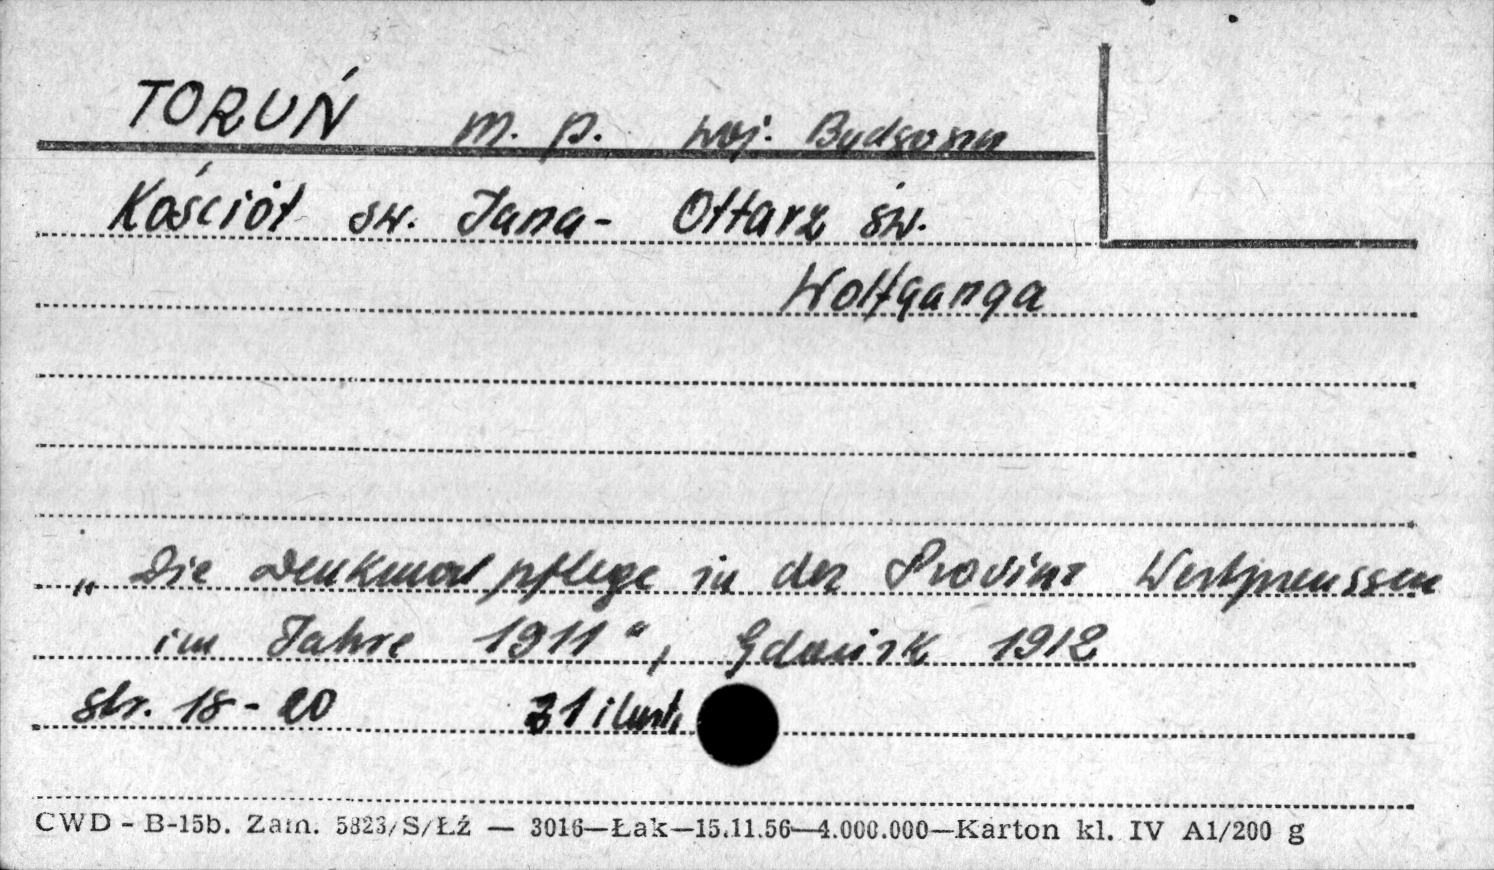 TORUŃ m. p. woj. Bydgoszcz
Kościół św. Jana - Ołtarz św.
Wolfganga
„Die Denkmalpflege in der Provinz Westpreussen
im Jahre 1911", Gdańsk 1912
str. 18-20 21 ilustr.
CWD - B-15b. Zam. 5823/S/Łź — 3016—Łak—15.11.56—4.000.000—Karton kl. IV A1/200 g